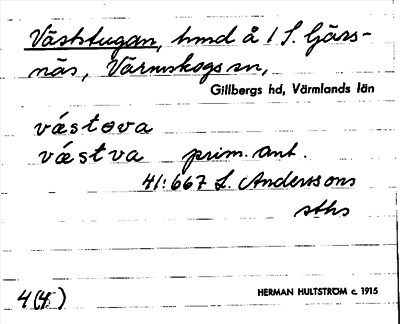 Väststugan, hmd å 1 S. Gärs-
näs, Värmskogs sn,
Gillbergs hd, Värmlands län
vǽstɵva
vǽstva prim. ant.
41:667 L. Anderssons
sths
4(4)
HERMAN HULTSTRÖM c. 1915